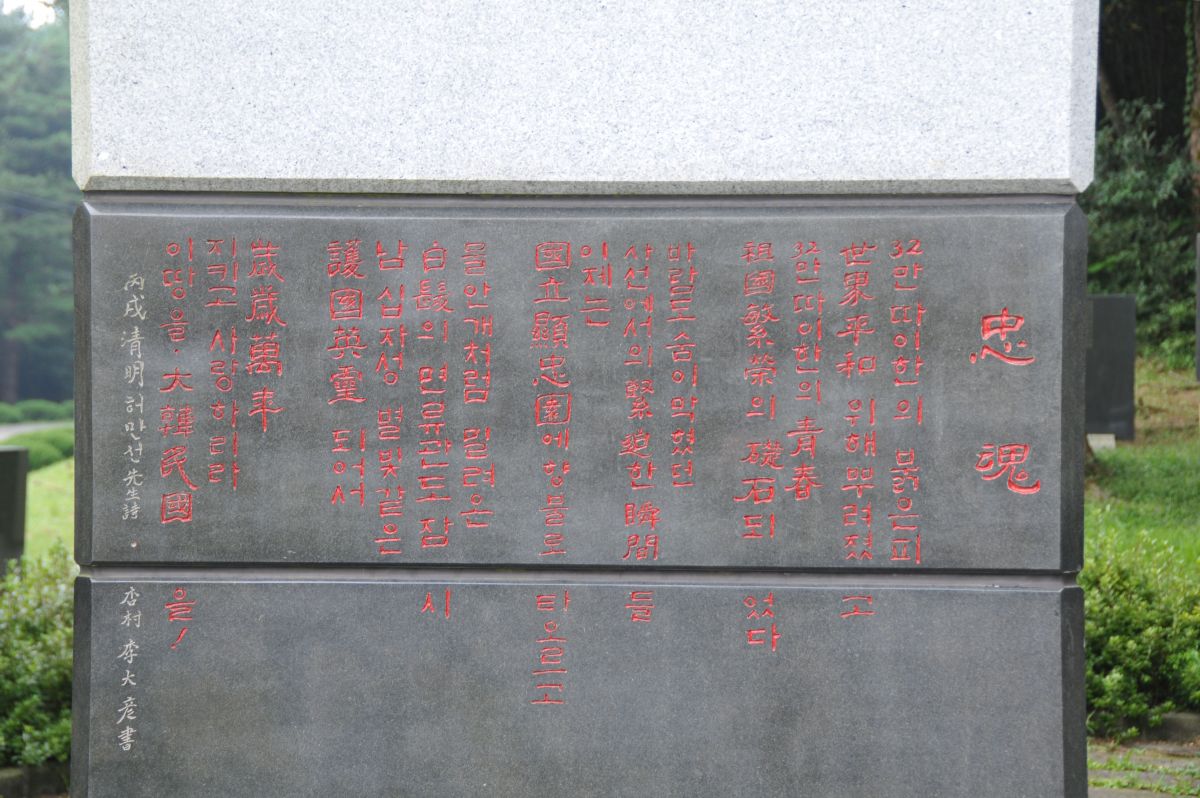 忠魂
32만 따이한의 붉은피
世界平和 위해 뿌려졌고
32만 따이한의 靑春
祖國繁榮의 礎石되었다
바람도 숨이 막혔던
사선에서의 緊迫한 瞬間들
이제는
國立顯忠園에 향불로 타오르고
물안개처럼 밀려온
白髮의 면류관도 잠시
남십자성 별빛같은
護國英靈 되어서
歲歲萬年
지키고 사랑하리라
이땅을. 大韓民國을!
丙戌 淸明 허만선 先生詩. 杏村 李大彦 書